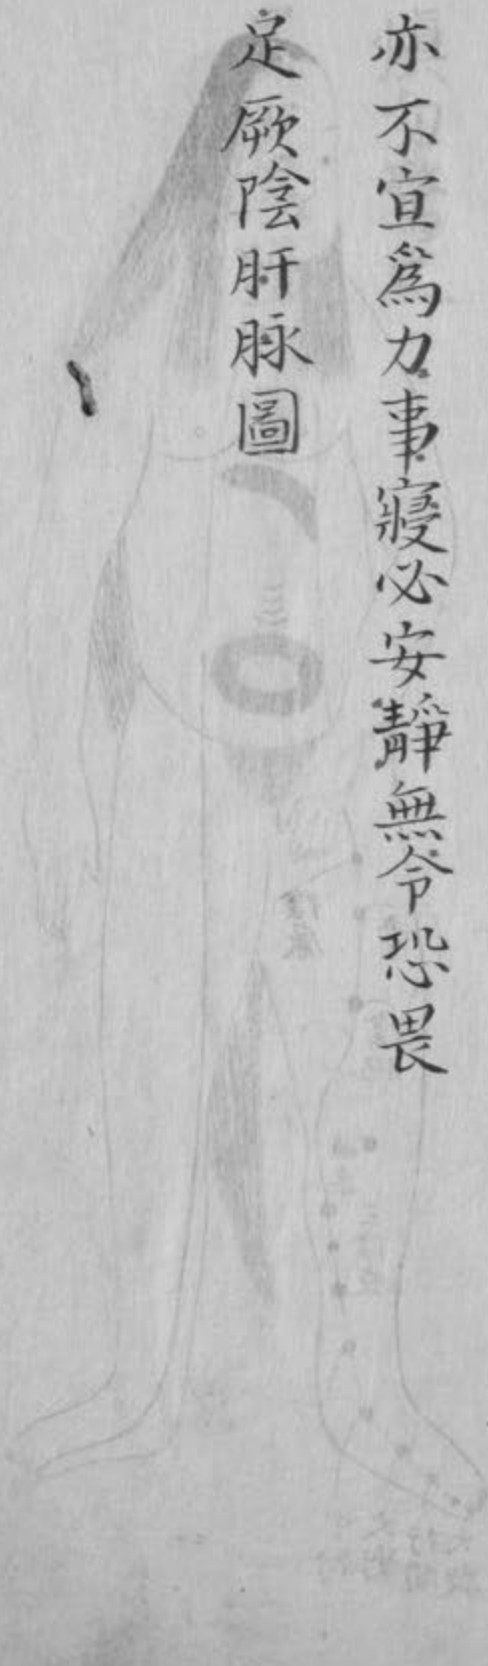 亦不宜爲力事寢必安靜無令恐畏
足厥陰肝脉圖